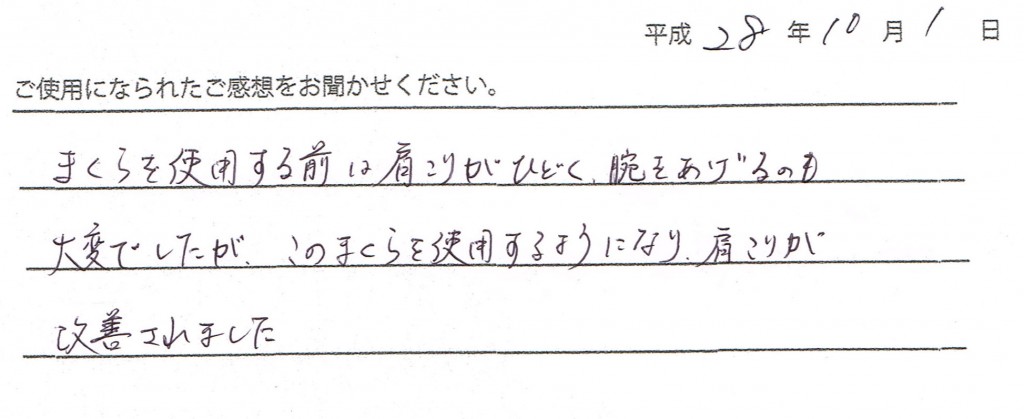 平成 28 年 10 月 1 日
ご使用になられたご感想をお聞かせください。
まくらを使用する前は肩こりがひどく、腕をあげるのも
大変でしたが、このまくらを使用するようになり、肩こりが
改善されました